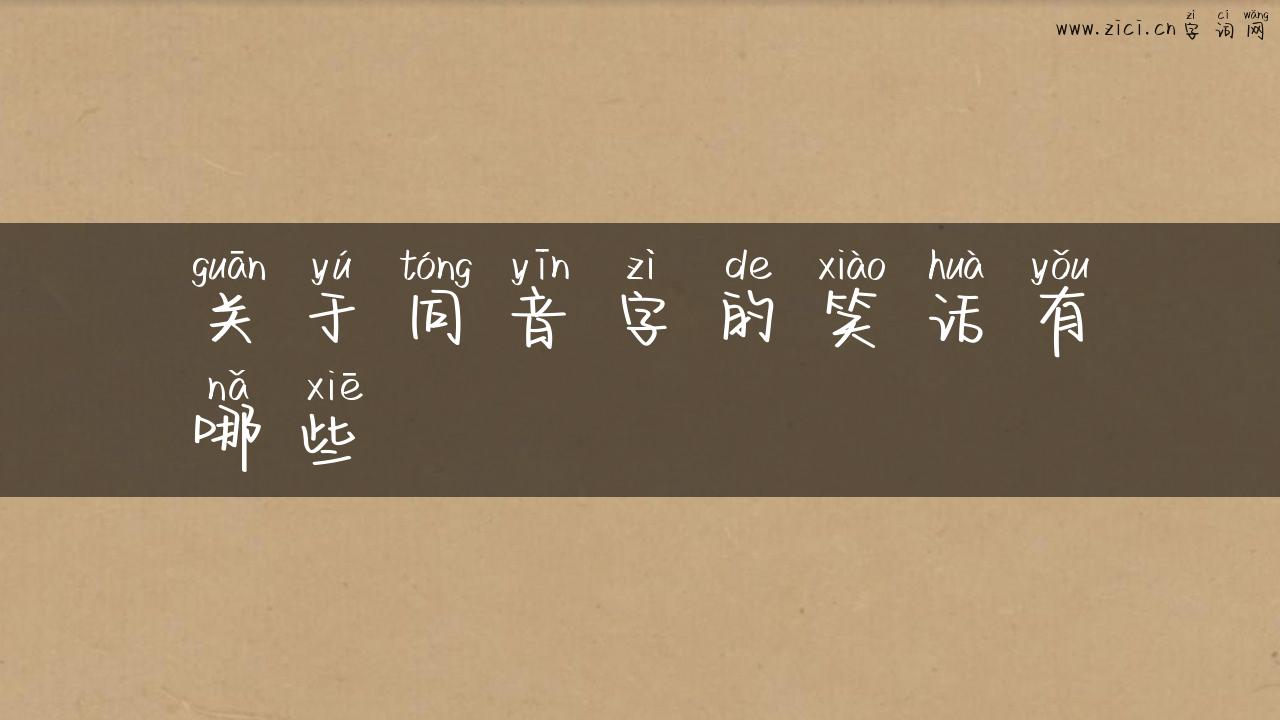 zì cí wǎng
www.zici.cn 字词网
guān yú tóng yīn zì de xiào huà yǒu
关于同音字的笑话有
nǎ xiē
哪些